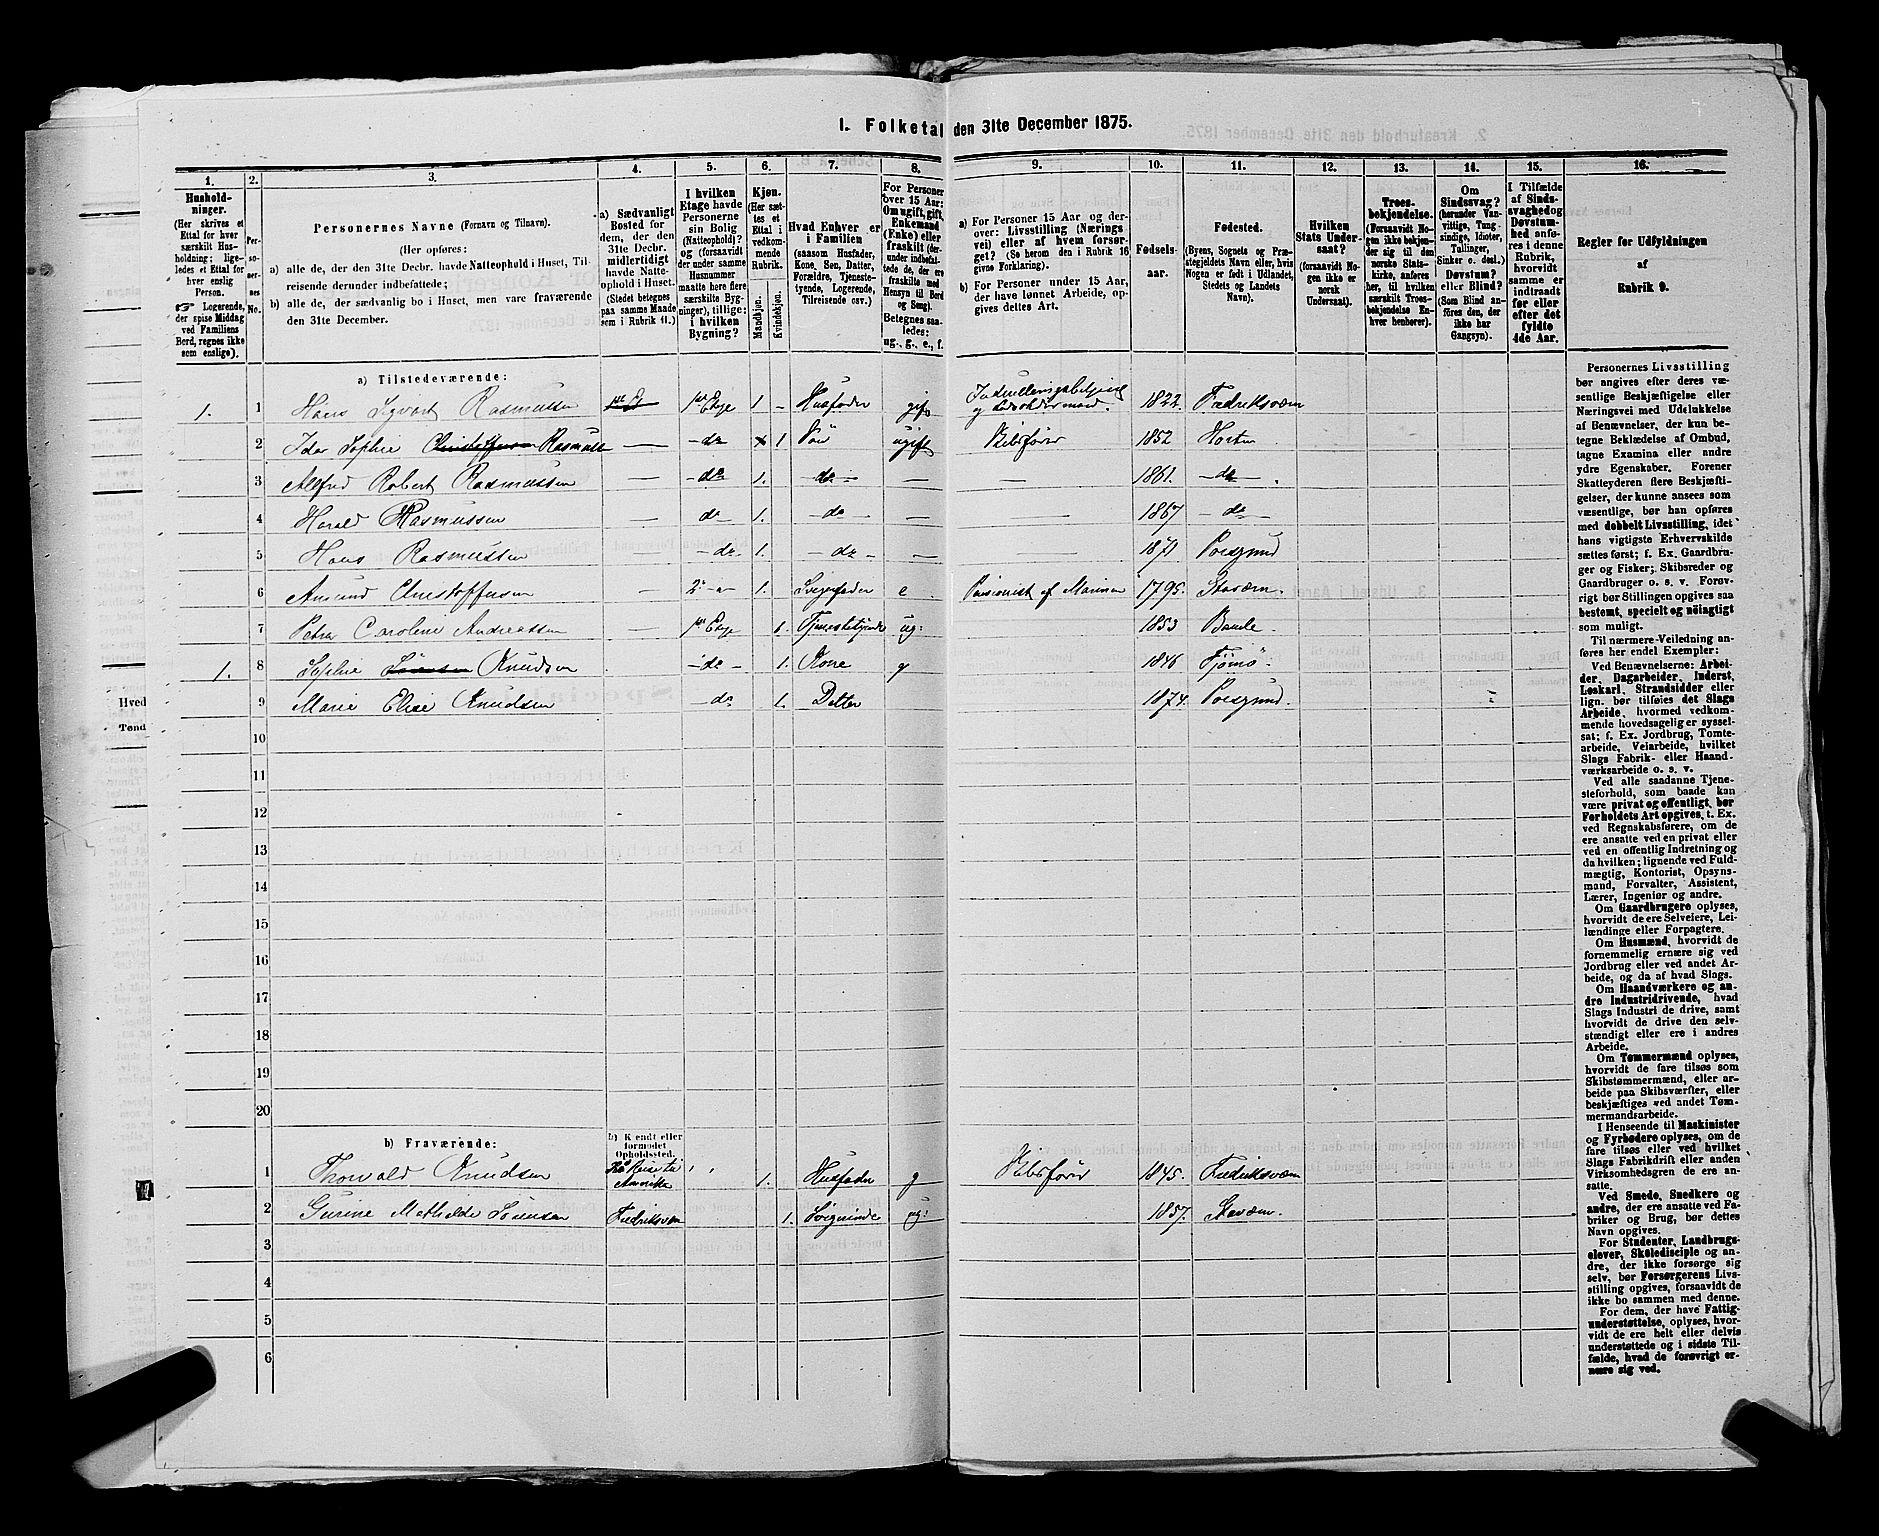 I. Folketal den 31te December 1875.
1. 2. 3. 4. 5. 6. 7. 8. 9. 10. 11. 12. 13. 14. 15. 16.
Husholdninger.
(Her skrives et
Ettal for hver
særskilt Husholdning;
ligeledes
et Ettal for
hver enslig
Person.
Logerende,
der spise Middag
ved Familiens
Bord, regnes ikke
som enslige).
Personernes No.
Personernes Navne (Fornavn og Tilnavn).
(Her opføres:
a) alle de, der den 31te Decbr. havde Natteophold i Huset, Tilreisende
derunder indbefattede;
b) alle de, der sædvanlig bo i Huset, men vare fraværende
den 31te December.
a) Sædvanligt
Bosted for
dem, der den
31te Decbr.
midlertidigt
havde Natteophold
i Huset.
(Stedet betegnes
paa samme Maade
som i Rubrik 11.)
I hvilken
Etage havde
Personerne
sin Bolig
(Natteophold)?
og (forsaavidt
der under samme
Husnummer
maatte høre flere
særskilte Bygninger),
tillige:
i hvilken
Bygning?
Kjøn.
(Her sættes
et
Ettal i
vedkommende
Rubrik.
Mandkjøn.
Kvindekjøn.
Hvad Enhver er
i Familien
(saasom Husfader,
Kone, Søn, Datter,
Forældre, Tjenestetyende,
Logerende,
Tilreisende osv.)
For Personer
over 15 Aar:
Om ugift, gift,
Enkemand
(Enke) eller
fraskilt (derunder
indbefattede
de, der ere
fraskilte med
Hensyn til Bord
og Seng).
Betegnes saaledes:
ug., g., e., f.
a) For Personer 15 Aar og derover:
Livsstilling (Næringsvei)
eller af hvem forsørget?
(Se herom den i Rubrik 16
givne Forklaring).
b) For Personer under 15 Aar,
der have lønnet Arbeide, opgives
dettes Art.
Fødselsaar.
Fødested.
(Byens, Sognets og Præstegjeldets
Navn eller, hvis
Nogen er født i Udlandet,
Stedets og Landets
Navn).
Hvilken
Stats Undersaat?
(forsaavidt Nogen
ikke er
norsk
Undersaat).
Troesbekjendelse.
(Forsaavidt Nogen
ikke bekjender
sig til den
norske Statskirke,
anføres
her, til hvilken
særskilt Troesbekjendelse
Enhver
henhører).
Om
Sindssvag?
(herunder Vanvittige,
Tungsindige,
Idioter,
Tullinger,
Sinker o. desl.)
Døvstum?
eller Blind?
(Som Blind anføres
den, der
ikke har
Gangsyn).
I Tilfælde
af Sindssvaghed
og
Døvstumhed
anføres
i denne
Rubrik,
hvorvidt
samme er
indtraadt
før eller
efter det
fyldte
4de Aar.
Regler for Udfyldningen
af
Rubrik 9.
a) Tilstedeværende:
1. 1 Hans Sigvart Rasmussen 1ste Etage 1 – Husfader gift 1822. Fredriksværn
2 Ida Sophie Christoffersen Rasmuss – do 1 ugift 1852 Horten
3 Alfred Robert Rasmussen – do 1. – do – 1861. – do – .
4 Harald Rasmussen – do – 1. – do – 1867 – do –
5 Hans Rasmussen – do. 1. – do – 1871 Porsgrund
6 Amund Christoffersen 1. Svigerfader e Pensionist af Marinen 1795. Staværn.
7 Petra Caroline Andreassen 1ste Etage 1. Tjenestetyende ug: 1853 Bamle.
1. 8 Sophie Knudsen – do – 1. Kone g 1846 Tjømø.
9 Marie Elise Knudsen – do 1. Datter 1874. Porsgrund.
10
11
12
13
14
15
16
17
18
19
20
b) Fraværende:
b) Kendt eller
formodet
Opholdssted.
1 Thorvald Knudsen Paa Reise til Amerika 1. Husfader g 1845. Fredriksværn
2 Gurine Mathilde Fredriksværn 1. ug: 1857. Staværn.
3
4
5
6
Personernes Livsstilling
bør angives efter deres væsentlige
Beskjæftigelse eller
Næringsvei med Udelukkelse
af Benævnelser, der kun betegne
Beklædelse af Ombud,
tagne Examina eller andre
ydre Egenskaber. Forener
Skatteyderen flere Beskjæftigelser,
der kunne ansees som
væsentlige, bør han opføres
med dobbelt Livsstilling, idet
hans vigtigste Erhvervskilde
sættes først; f. Ex. Gaardbruger
og Fisker; Skibsreder og
Gaardbruger o. s. v. Forøvrigt
bør Stillingen opgives saa
bestemt, specielt og nøiagtigt
som muligt.
Til nærmere Veiledning anføres
her endel Exempler:
Ved Benævnelserne: Arbeider,
Dagarbeider, Inderst,
Løskarl, Strandsidder eller
lign. bør tilføies det Slags
Arbeide, hvormed vedkommende
hovedsagelig er sysselsat;
f. Ex. Jordbrug, Tomtearbeide,
Veiarbeide, hvilket
Slags Fabrik- eller Haandværksarbeide
o. s. v.
Ved alle saadanne Tjenesteforhold,
som baade kan
være privat og offentligt, bør
Forholdets Art opgives, t. Ex.
ved Regnskabsførere, om de
ere ansatte ved en privat eller
ved en offentlig Indretning og
da hvilken; lignende ved Fuldmægtig,
Kontorist, Opsynsmand,
Forvalter, Assistent,
Lærer, Ingeniør og andre.
Om Gaardbrugere oplyses,
hvorvidt de ere Selveiere, Leilændinge
eller Forpagtere.
Om Husmænd, hvorvidt de
fornemmelig ernære sig ved
Jordbrug eller ved andet Arbeide,
og da af hvad Slags.
Om Haandværkere og andre
Industridrivende, hvad
Slags Industri de drive, samt
hvorvidt de drive den selvstændigt
eller ere i andres
Arbeide.
Om Tømmermænd oplyses,
hvorvidt de fare tilsøs som
Skibstømmermænd, eller arbeide
paa Skibsværfter, eller
beskjæftiges ved andet Tømmermandsarbeide.
I Henseende til Maskinister
og Fyrbødere oplyses, om de
fare tilsøs eller ved hvilket
Slags Fabrikdrift eller anden
Virksomhedsgren de ere ansatte.
Ved Smede, Snedkere og
andre, der ere ansatte ved Fabriker
og Brug, bør dettes
Navn opgives.
For Studenter, Landbrugselever,
Skoledisciple og andre,
der ikke forsørge sig
selv, bør Forsørgerens Livsstilling
opgives, forsaavidt de
ikke bo sammen med denne.
For dem, der have Fattigunderstøttelse,
oplyses, hvorvidt
de ere helt eller delvis
understøttede og i sidste Tilfælde,
hvad de forøvrigt ernære
sig ved.